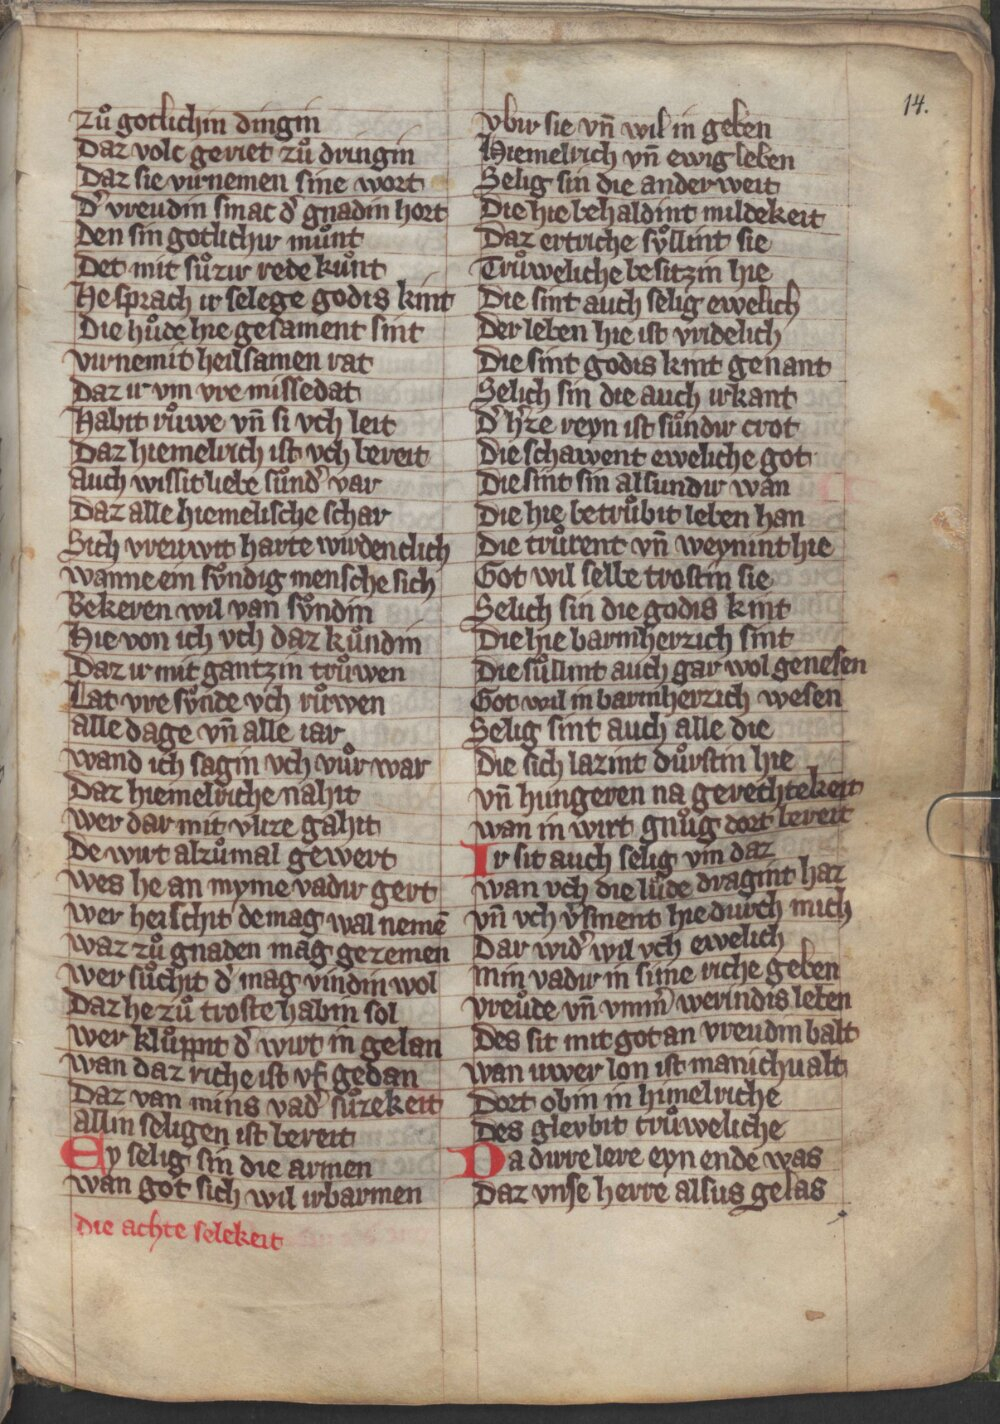 14.
zuͦ gotlichin dingin
Daz volc geriet zuͦ dringin
Daz sie virnemen sine wort
D͛ vreudin smac d͛ gnadin hort
Den sin gotlichir muͦnt
Det mit suͦzir rede kuͦnt
He sprach ir selege godis kint
Die huͦde hie gesament sint
virnemit heilsamen rat
Daz ir vm vre missedat
Habit ruͦwe vn̄ si vch leit
Daz hiemelrich ist vch bereit
Auch wissit liebe suͦnd͛ var
Daz alle hiemelische schar
Sich vreuwit harte wirdenclich
wanne ein sůndig mensche sich
Bekeren wil van sůndin
Hie von ich vch daz kuͦndin
Daz ir mit gantzin truͦwen
Lat vre sůnde vch ruͦwen
alle dage vn̄ alle iar
wand ich sagin vch vuͦr war
Daz hiemelriche nahit
wer dar mit vlize gahit
De wirt alzuͦmal gewert
wes he an myme vadir gert
wer heischit de mag wal nemē
waz zuͦ gnaden mag gezemen
wer suͦchit d͛ mag vindin wol
Daz he zuͦ troste habin sol
wer kluͦppit d͛ wirt in gelan
wan daz riche ist vf gedan
Daz van mins vad͛ suͦzekeit
allin seligen ist bereit
Ey selig sin die armen
wan got sich wil irbarmen
die achte selekeit
vbir sie vn̄ wil in geben
Hiemelrich vn̄ ewig leben
Selig sin die anderweit
Die hie behaldint mildekeit
Daz ertriche sůllint sie
Truͦweliche besitzin hie
Die sint auch selig ewelich
Der leben hie ist vridelich
Die sint godis kint genant
Selich sin die auch irkant
D͛ h͛ze reyn ist suͦndir crot
Die schawent eweliche got
Die sint sin alsundir wan
Die hie betruͦbit leben han
Die truͦrent vn̄ weynint hie
Got wil selbe trostin sie
Selich sin die godis kint
Die hie barmherzich sint
Die suͦllint auch gar wol genesen
Got wil in barmherzich wesen
Selig sint auch alle die
Die sich lazint duͦrstin hie
vn̄ hungeren na gerechtekeit
wan in wirt gnuͦg dort bereit
Ir sit auch selig vm daz
wan vch die luͦde dragint haz
vn̄ vch v͛sment hie durch mich
Dar wid͛ wil vch ewelich
Min vadir in sime riche geben
vreuͦde vn̄ vmm͛ werindis leben
Des sit mit got an vreudin balt
wan uwer lon ist manichualt
Dort obin in himelriche
Des gleybit truͦweliche
Da dirre lere eyn ende was
Daz vnse herre alsus gelas